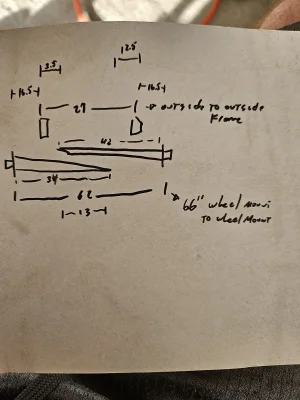 2.5
3.5
16.5
16.5
29 outside to outside
Frame
42
34
62 66" wheel mount
to wheel mount
13